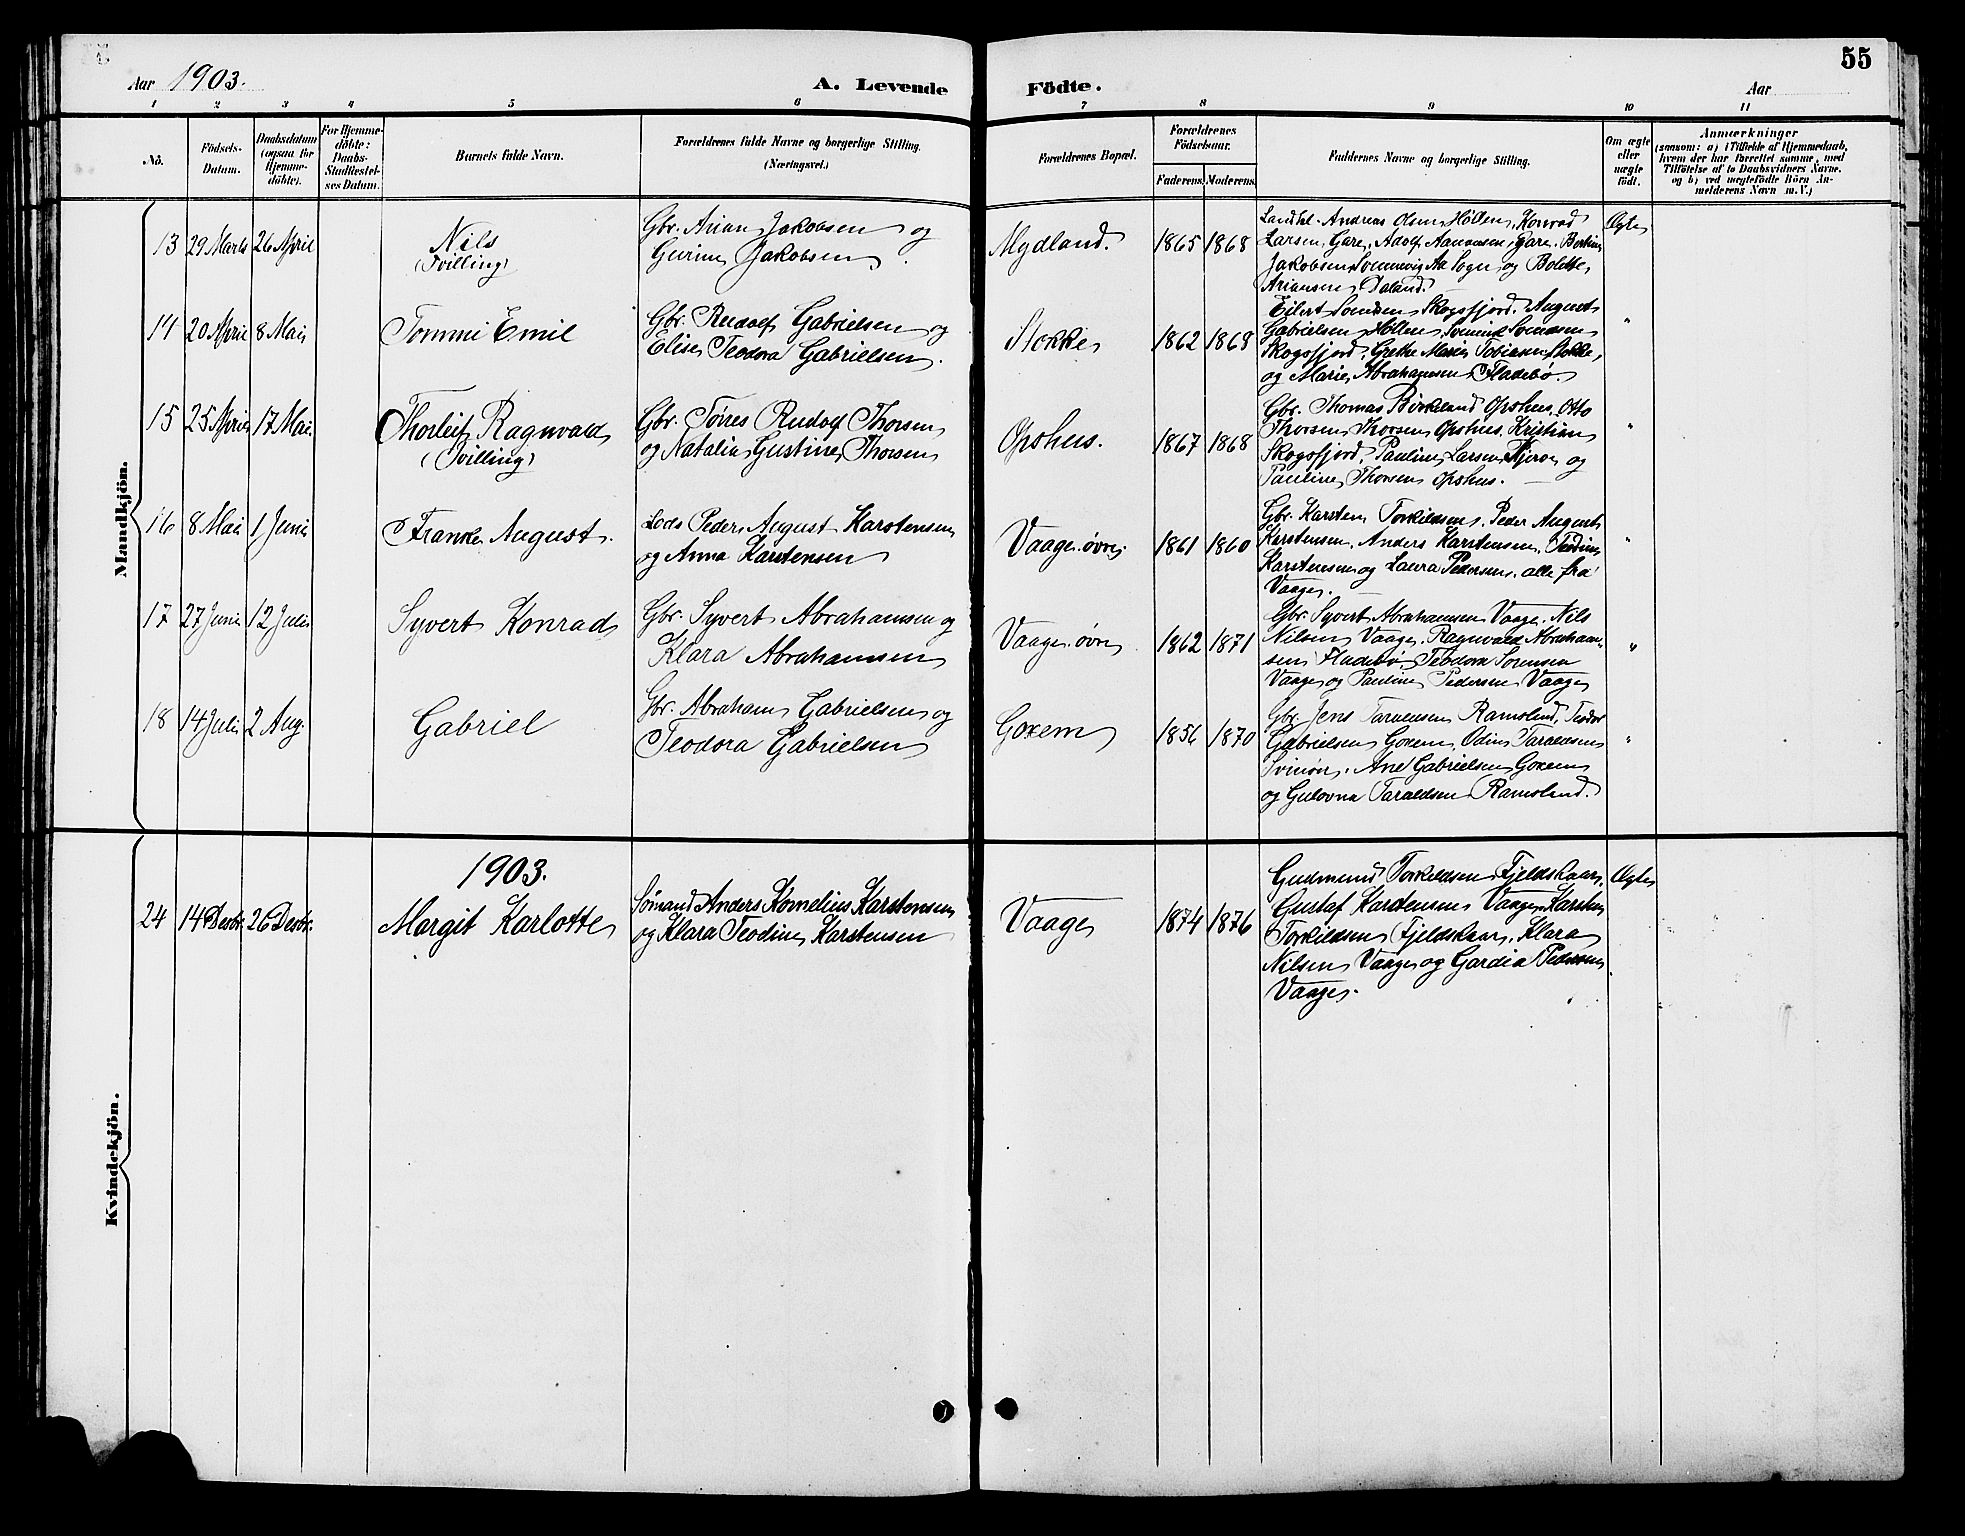 Aar 1903.
A. Levende
Födte.
Aar
55
1 2 3 4 5 6 7 8 9 10 11
No.
Födsels-
Datum.
Daabsdatum
(ogsaa for
Hjemme-
döbte).
For Hjemme-
döbte:
Daabs-
Stadfæstel-
ses Datum.
Barnets fulde Navn.
Forældrenes fulde Navne og borgerlige Stilling.
(Næringsvei.)
Forældrenes Bopæl.
Forældrenes
Födselsaar.
Faderens.
Moderens.
Faddernes Navne og borgerlige Stilling.
Om ægte
eller
uægte
födt.
Anmærkninger
(saasom: a) i Tilfælde af Hjemmedaab,
hvem der har forrettet samme, med
Tilföielse af to Daabsvidners Navne.
og b) ved uægtefödte Börn An-
melderens Navn m. V.)
Mandkjön.
13 29 Marts 26 April
Nils
(Tvilling)
Gbr. Arian Jakobsen og
Gurine Jakobsen.
Mydland.
1865 1868
Andreas Olsen Höllen, Konrad
Larsen, Gare, Adolf Aanonsen, Gare,
Jakobsen, Aa Sogn og Bolette
Ariansen Daland.
Ægte
14 20 April 8 Mai
Tommi Emil
Gbr. Rudolf Gabrielsen og
Elise Teodora Gabrielsen.
Stokke
1862 1868
Eilert Svendsen Skogsfjord. August
Gabrielsen Höllen, Svendsen
Skogsfjord, Grethe Marie Tobiasen, Stokke,
og Marie Abrahamsen Fladebö.
"
15 25 April 17 Mai.
Thorleif Ragnvald
(Tvilling)
Gbr. Tórres Rudolf Thorsen
og Natalia Gustine Thorsen
Opshus.
1867 1868
Gbr. Thomas Birkeland Opshus, Otto
Thorsen, Thorsen Opshus, Kristian
Skogsfjord, Pauline Larsen og
Pauline Thorsen Opshus.
"
16 8 Mai 1 Juni
Frank August.
Lods Peder August Karstensen
og Anna Karstensen
Vaage øvre.
1861 1860
Gbr. Karsten Torkildsen, Peder August
Karstensen, Anders Karstensen, Teodine
Karstensen og Laura Pedersen, alle fra
Vaage.
"
17 27 Juni 12 Juli
Syvert Konrad
Gbr. Syvert Abrahamsen og
Klara Abrahamsen
Vaage øvre
1862 1871
Gbr. Syvert Abrahamsen Vaage. Nils
Nilsen Vaage, Ragnvald Abraham-
sen Fladebö, Teodora Sörensen
Vaage og Pauline Pedersen Vaage
"
18 14 Juli 2 Aug.
Gabriel
Gbr. Abraham Gabrielsen og
Teodora Gabrielsen
Goxem
1856 1870
Gbr. Jens Taraldsen Ramsland, Teodor
Gabrielsen Goxem, Odin Taraldsen
Svinör. Ane Gabrielsen Goxem
og Gulovna Taraldsen Ramsland.
"
Kvindekjön.
1903.
24 14 Decbr. 26 Decbr.
Margit Karlotte
Sømand Anders Kornelius Karstensen
og Klara Teodine Karstensen
Vaage
1874 1876
Gudmund Torkildsen Fjeldskaar,
Gustaf Karstensen Vaage, Karsten
Torkildsen Fjeldskaar, Klara
Nilsen Vaage og Gardia Pedersen
Vaage.
Ægte